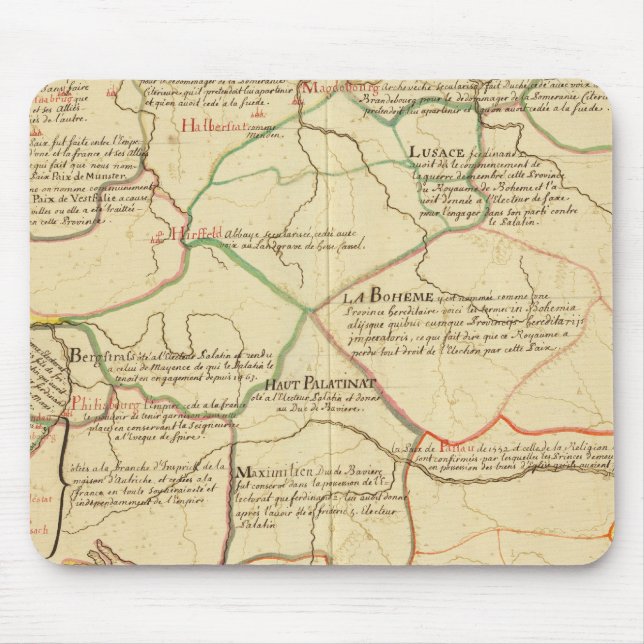 sans faire
pour le dedommager de la Pomeranie
Citerieure qu'il pretendoit luy apartenir
et qu'on avoit cedé a la suede.
Magdebourg Archevêché secularisé fait Duché, cedé avec voix au
Brandebourg pour le dedommager de la Pomeranie Citerieure
pretendoit luy apartenir et qu'on avoit cedé a la suede.
Osnabrug que
et ses Alliés
eis de l'autre.
Halberstat comme
Menden.
Paix fut faite entre l'Empe
d'une et la france et ses Alliés
qui fait que nous nom
Paix de Munster.
on nomme communement
Paix de Vestfalie a cause
villes ou elle a été traittée
en cette Province.
LUSACE ferdinand 2
avoit dés le commencement de
la guerre demembré cette Province
du Royaume de Boheme et l'a
voit donnée a l'Electeur de saxe
pour l'engager dans son parti contre
le Palatin.
Hirsfeld Abbaye secularisée, cedée avec
voix au Landgrave de Hesse Cassel.
LA BOHEME y est nommée comme une
Province hereditaire voici les termes in Bohemia
alijsque quibus cumque Provincijs hereditarijs
imperatoris, ce qui fait dire que ce Royaume a
perdu tout droit de l'Election par cette Paix.
Bergstras ôté a l'Electeur Palatin et rendu
a celui de Mayence de qui le Palatin le
tenoit en engagement depuis 1463.
HAUT PALATINAT
ôté a l'Electeur Palatin et donné
au Duc de Baviere.
Philisbourg l'empire cede a la france
le pouvoir de tenir garnison dans cette
place en conservant la seigneurie
a l'Eveque de spire.
La Paix de Passau de 1552 et celle de la Religion
sont confirmées par lesquelles les Princes demeu
en possession des biens d'Eglise qu'ils auroient
ôtées a la branche d'Inspruck de la
maison d'Autriche, et cedées a la
france en toute souveraineté et
independamment de l'Empire
MAXIMILIEN Duc de Baviere
fut conservé dans la possession de l'E-
lectorat que ferdinand 2. lui avoit donné
après l'avoir ôté a frideric 5. Electeur
Palatin